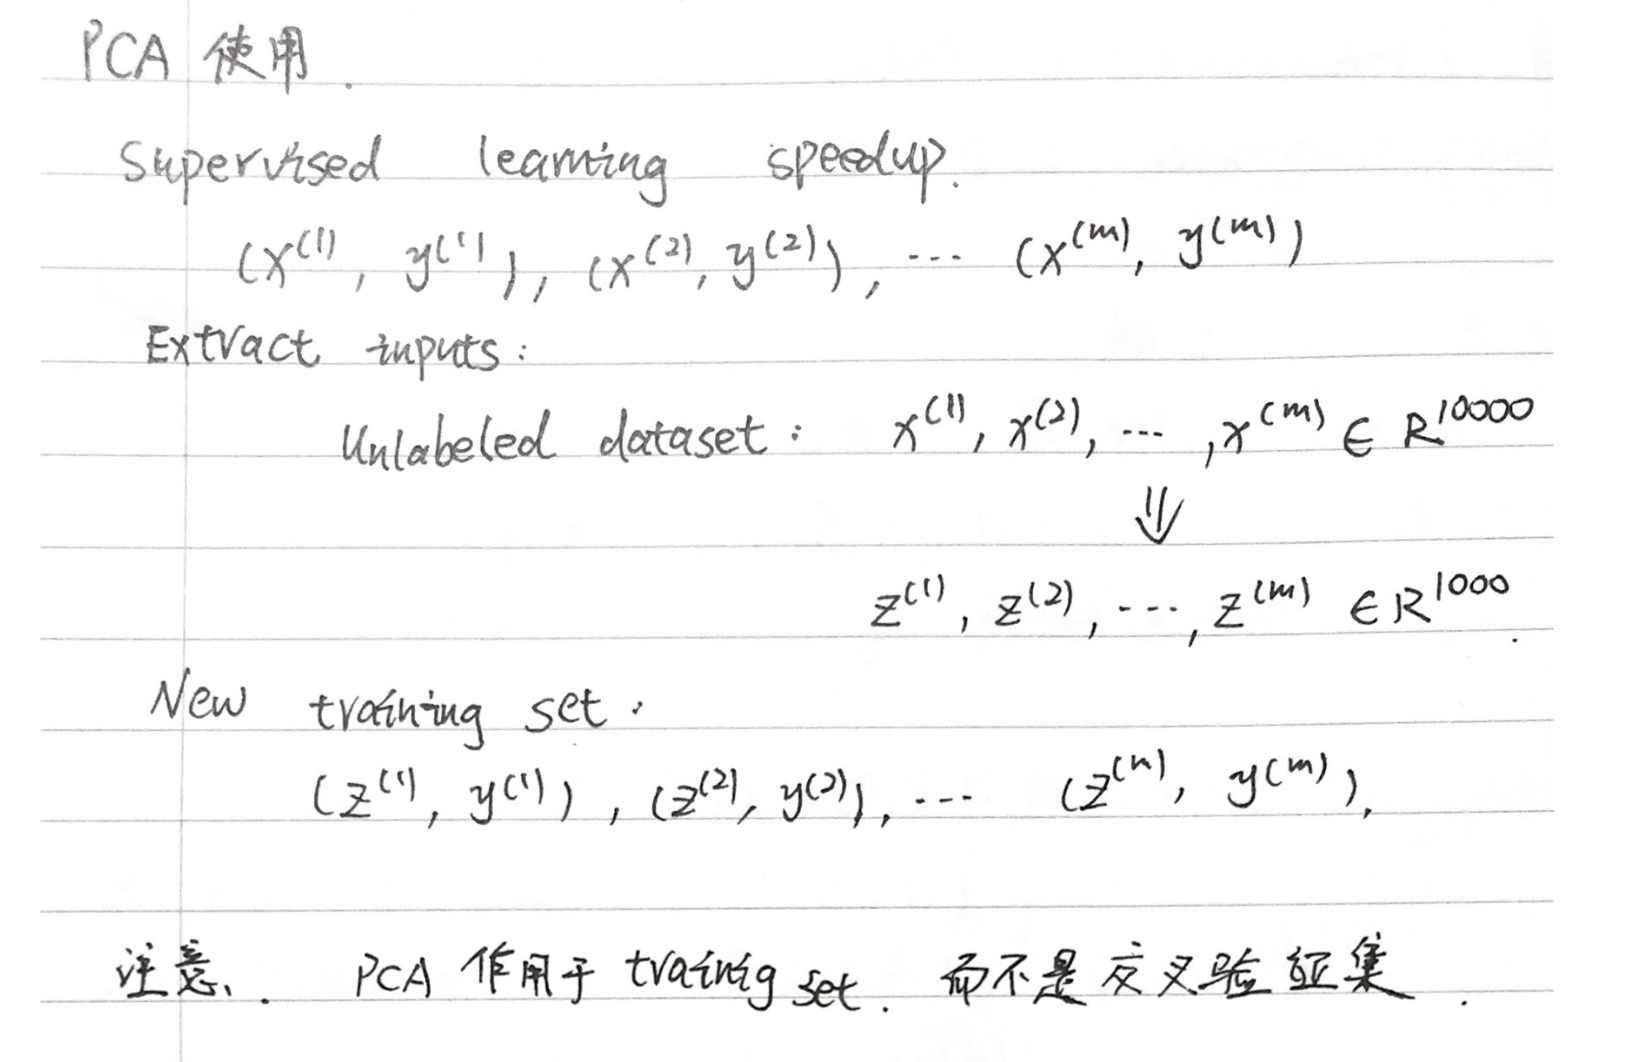 PCA 使用.
Supervised learning speedup.
(x⁽¹⁾, y⁽¹⁾), (x⁽²⁾, y⁽²⁾), ... (x⁽ᵐ⁾, y⁽ᵐ⁾)
Extract inputs:
Unlabeled dataset: x⁽¹⁾, x⁽²⁾, ... , x⁽ᵐ⁾ ∈ R¹⁰⁰⁰⁰
⇓
z⁽¹⁾, z⁽²⁾, ..., z⁽ᵐ⁾ ∈ R¹⁰⁰⁰.
New training set.
(z⁽¹⁾, y⁽¹⁾), (z⁽²⁾, y⁽²⁾), ... (z⁽ᵐ⁾, y⁽ᵐ⁾).
注意、. PCA 作用于 trainig set. 而不是交叉验证集.